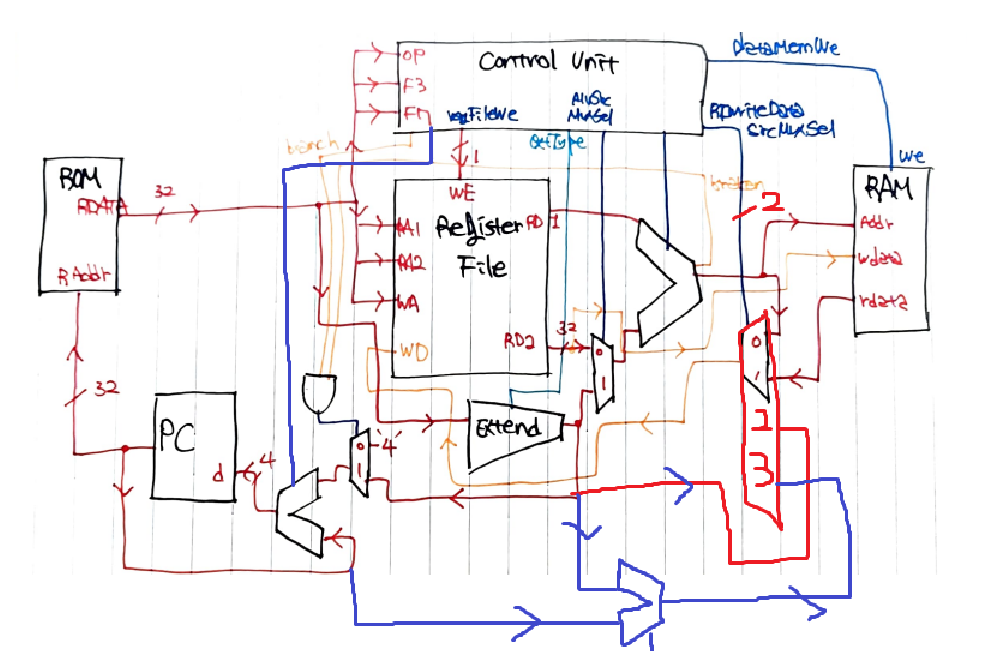 dataMemWe
OP
Control Unit
F3
F7
regFileWe
AluSrc
MuxSel
RDwriteData
SrcMuxSel
extType
branch
1
We
ROM
RDATA
32
WE
RAM
RA1
Register
RD1
2
Addr
RA2
File
wdata
RAddr
WA
rdata
32
RD2
WD
0
0
1
1
32
Extend
PC
'4'
0
1
2
d
4
3